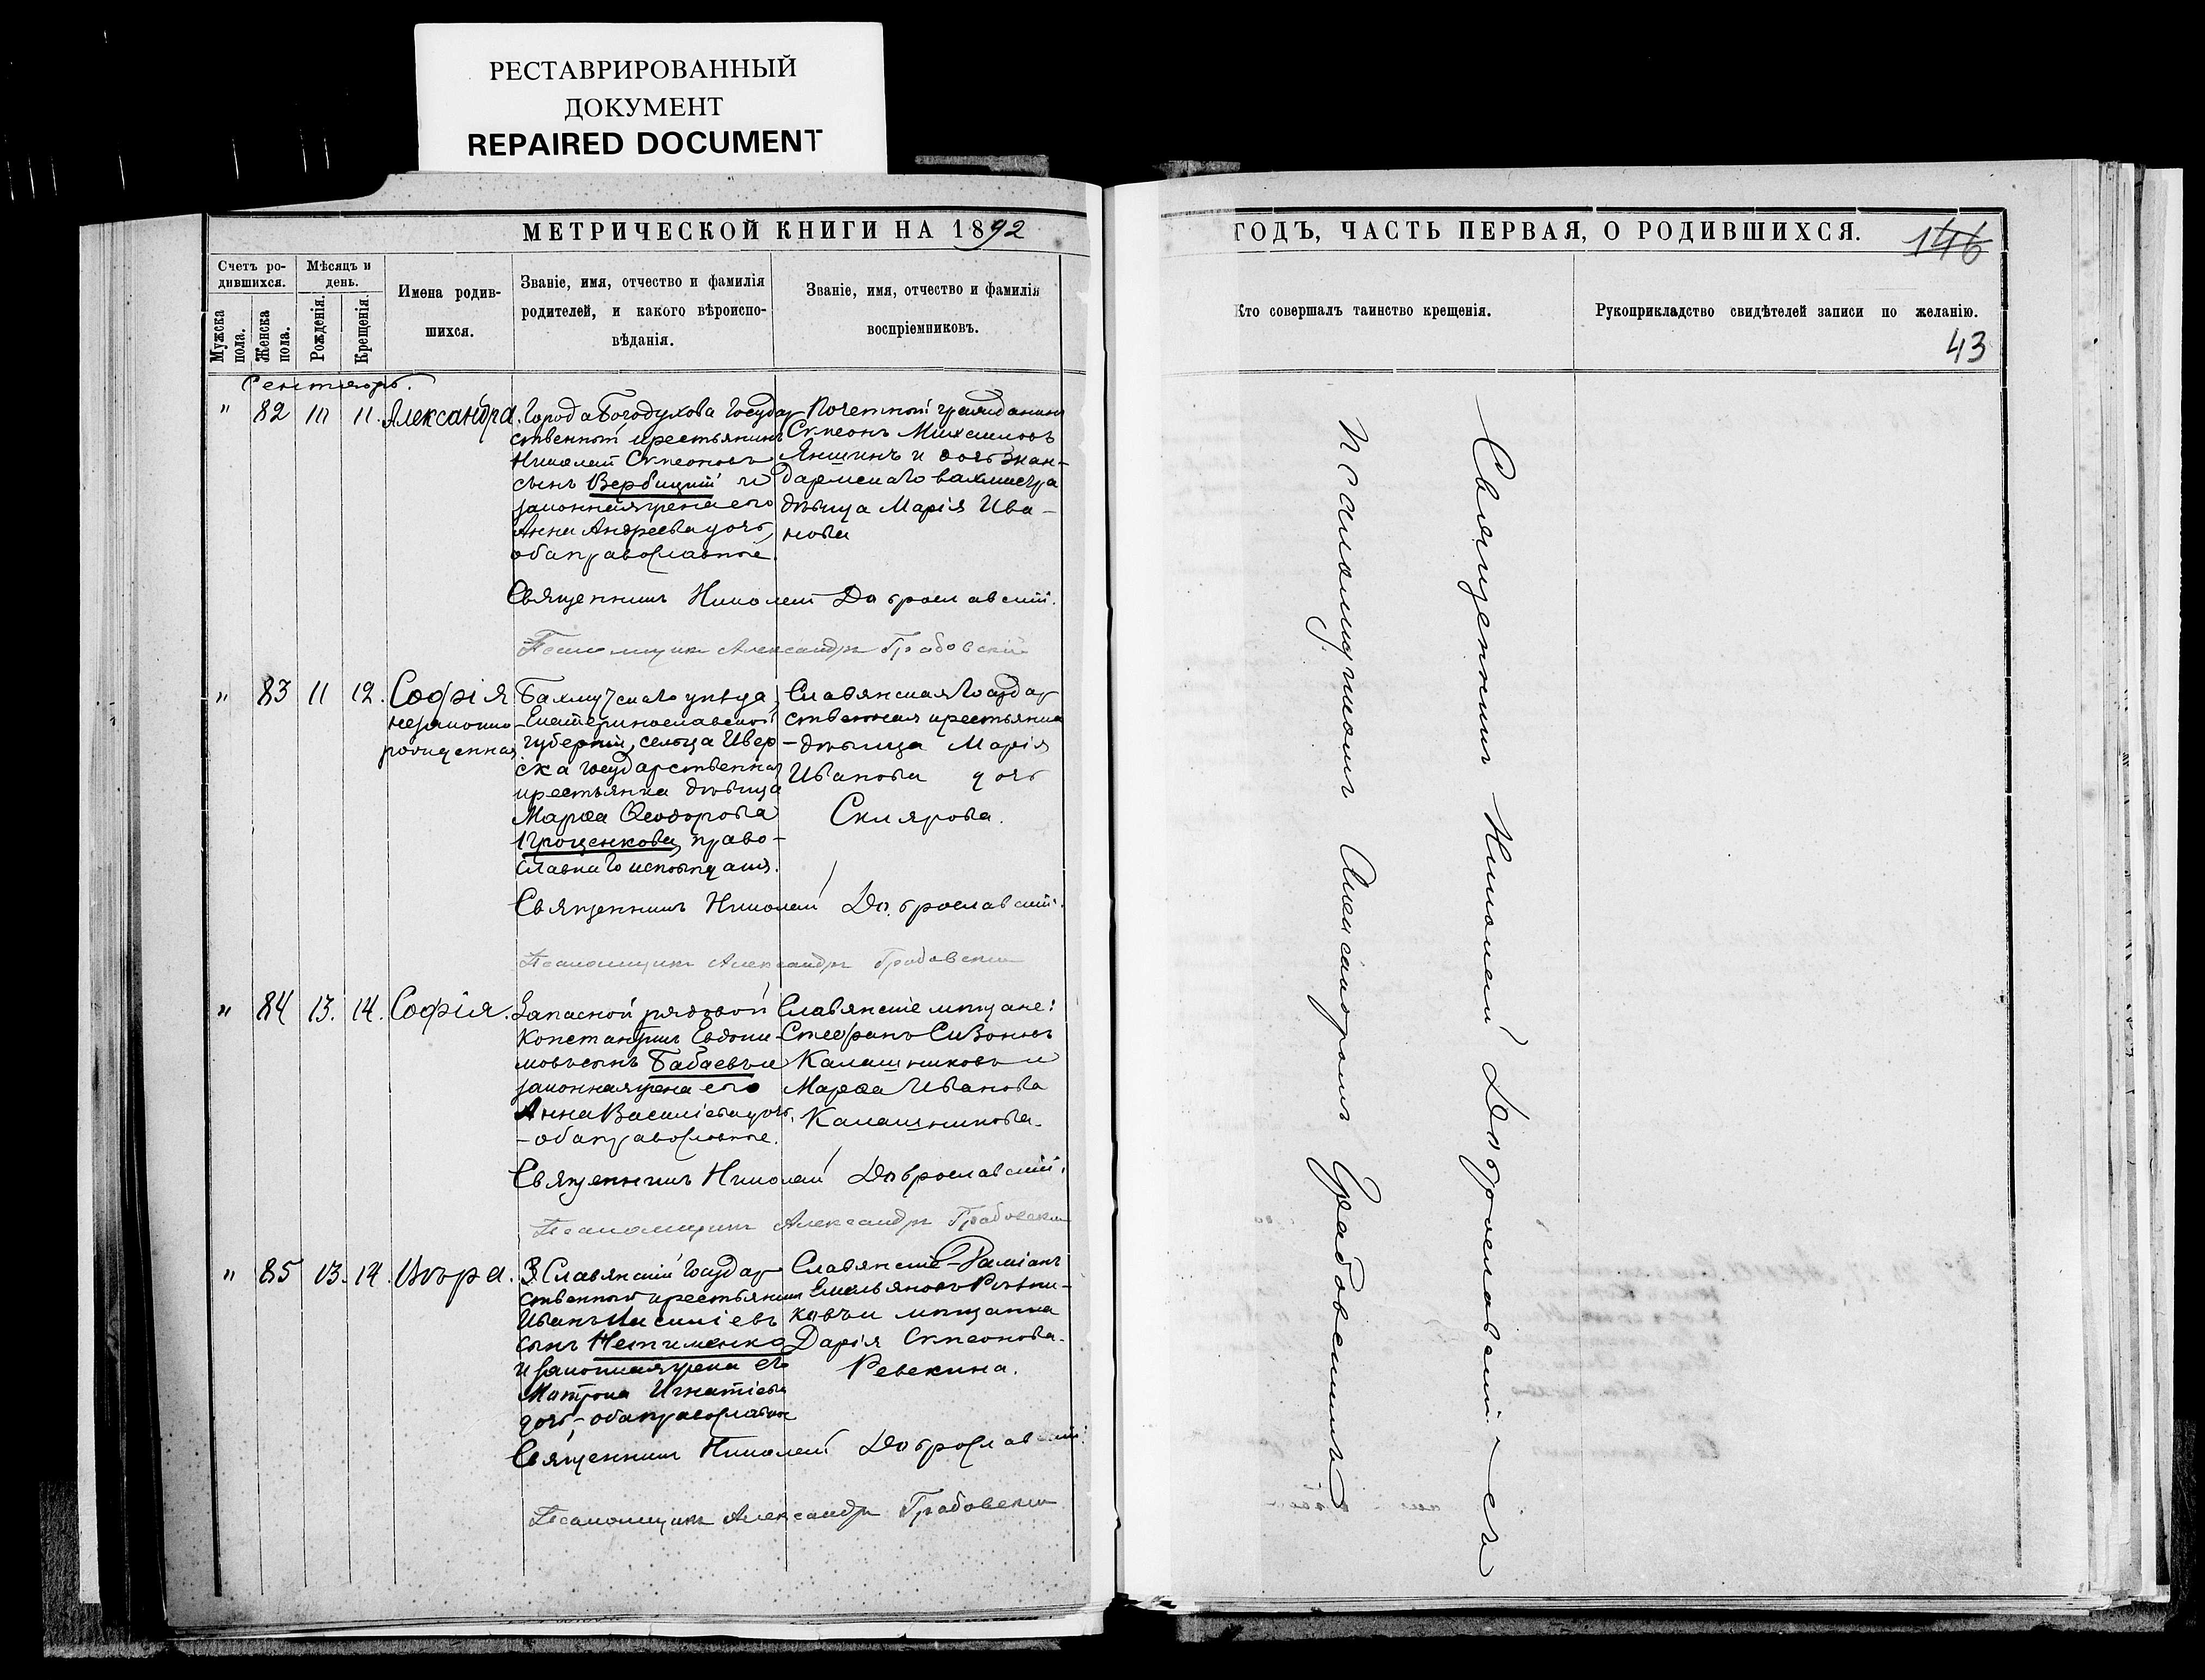 РЕСТАВРИРОВАННЫЙ
ДОКУМЕНТ
REPAIRED DOCUMENT
МЕТРИЧЕСКОЙ КНИГИ НА 1892
Счетъ ро-
дившихся.
Мужска
пола.
Женска
пола.
Мѣсяцъ и
день.
Рожденія.
Крещенія.
Имена родив-
шихся.
Званіе, имя, отчество и фамилія
родителей, и какого вѣроиспо-
вѣданія.
Званіе, имя, отчество и фамилія
воспріемниковъ.
Сентябрь.
" 82 10 11. Александра.
Города Богодухова Государ
ственный крестьянинъ
Николай Симеоновъ
сынъ Вербицкій и
законная жена его
Анна Андреева дочь,
оба православные.
Почетный гражданинъ
Симеонъ Михаиловъ
Яншинъ и дочь Жан-
дармскаго вахмистра
дѣвица Марія Ива-
нова
Священникъ Николай Доброславскій.
Псаломщикъ Александръ Грабовскій
" 83 11 12. Софія
незаконно-
рожденная
Бахмутскаго уѣзда,
Екатеринославской
губерніи, сельца Ивер
ска Государственная
крестьянка дѣвица
Марѳа Ѳеодорова
право-
славнаго исповѣданія.
Славянская Государ
ственная крестьянка
-дѣвица Марія
Иванова дочь
Склярова.
Священникъ Николай Доброславскій.
Псаломщикъ Александръ Грабовскій
" 84 13. 14. Софія.
Запасной рядовой
Константинъ Евдоки-
мовъ сынъ Бабаевъ и
законная жена его
Анна Василіева дочь,
-оба православные.
Славянскіе мѣщане:
Стефанъ
Калашниковъ и
Марѳа Иванова
Калашникова.
Священникъ Николай Доброславскій.
Псаломщикъ Александръ Грабовскій
" 85 13. 14. Вѣра.
Славянскій Государ
ственный крестьянинъ
Иванъ Василіевъ
сынъ
и законная жена его
Матрона Игнатіева
дочь,- оба православные
Славянскіе- Даміанъ
Емельяновъ
ковъ и мѣщанка
Дарія Симеонова
Ревекина.
Священникъ Николай Доброславскій.
Псаломщикъ Александръ Грабовскій
ГОДЪ, ЧАСТЬ ПЕРВАЯ, О РОДИВШИХСЯ.
146
Кто совершалъ таинство крещенія.
Рукоприкладство свидѣтелей записи по желанію.
43
Священникъ Николай Доброславскій - съ
Псаломщикомъ Александромъ Грабовскимъ